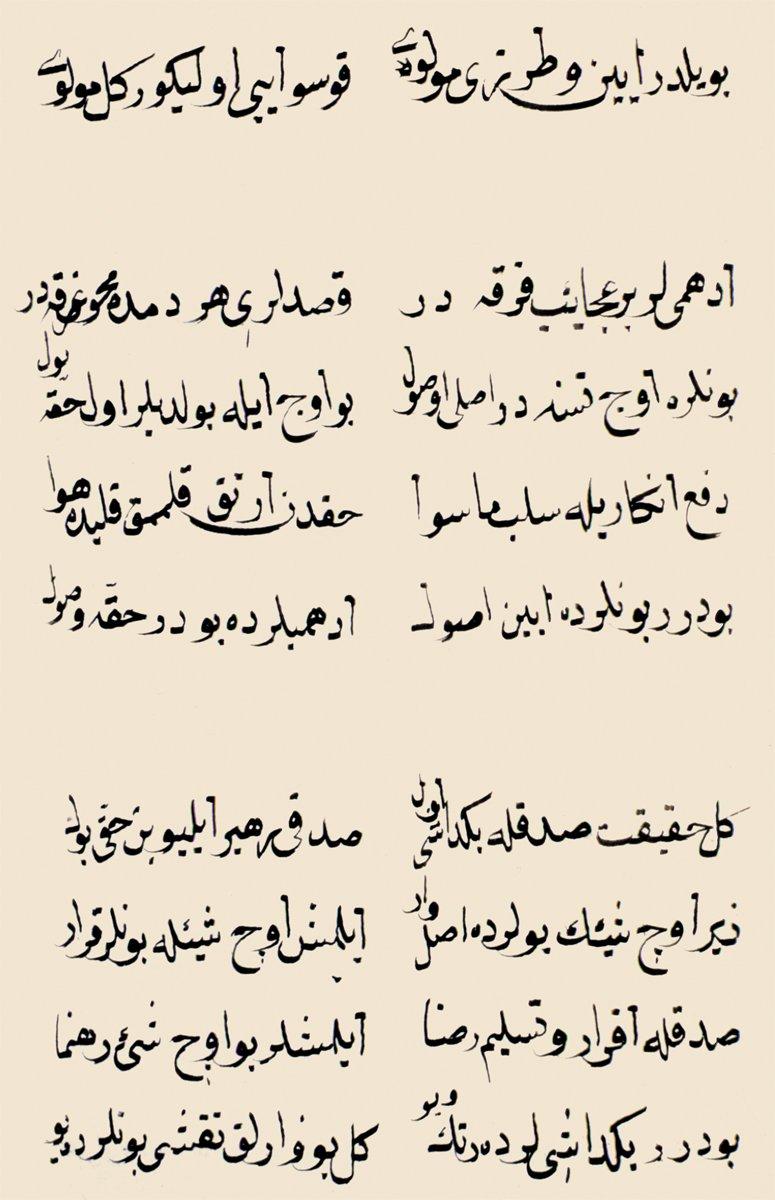 بويلدر آيين و طرزى مولوى
قوسوايپى اوليكور كل مولوى
ادهمى لر بر عجايب فرقه در
قصدلرى هر دمده محو غرقه در
بونلره اوج نسنه در اصلى اوصول
بو اوج ايله بولديلر اول حقّه يول
دفع انكاريله سلب ماسوا
حقدن ارتق قلممق قلبده هوا
بودرر بونلرده ايين اصول
ادهميلرده بو در حقّه وصول
كل حقيقت صدقله بكداشى اول
صدقى رهبر ايليوبن حقى بول
زيرا اوچ شيئك يولرده اصل وار
ايلمش اوچ شيئله بونلر قرار
صدقله اقرار و تسليم رضا
ايلمشلر بو اوچ شئ رهنما
بودرر بكداشى لرده رنك و بو
كل بو وارلق نقشنى بونلرده يو